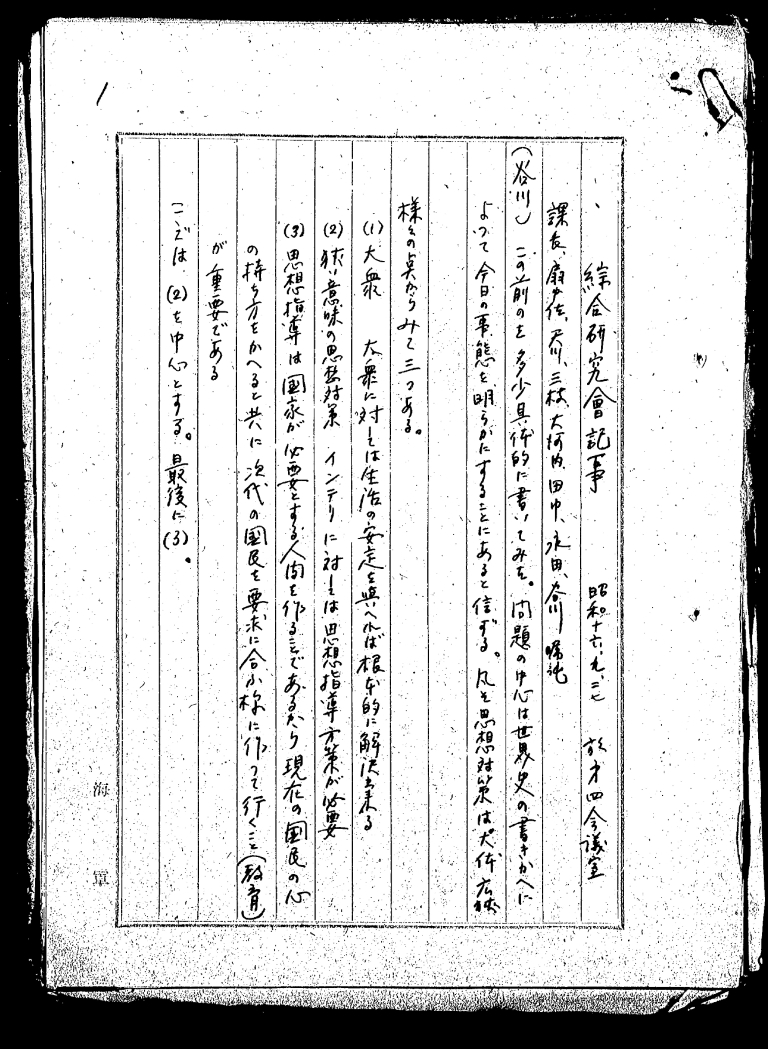 1
一、綜合研究會記事　昭和十六、九、二七　於才四会議室
課長、扇少佐、谷川、三枝、大河内、田中、永田、谷川 嘱託
（谷川）この前のを多少具体的に書いてみた。問題の中心は世界史の書きかへに
よつて今日の事態を明らかにすることにあると信ずる。凡そ思想対策は大体
様々の点からみて三つある。
(1) 大衆　大衆に対しては生活の安定を與へれば根本的に解決出来る
(2) 狭い意味の思想対策　インテリに対しては思想指導方策が必要
(3) 思想指導は國家が必要とする人間を作ることであるから現在の國民の心
の持ち方をかへると共に次代の國民を要求に合ふ様に作つて行くこと（教育）
が重要である
こゝでは(2)を中心とする。最後に(3)。
海軍